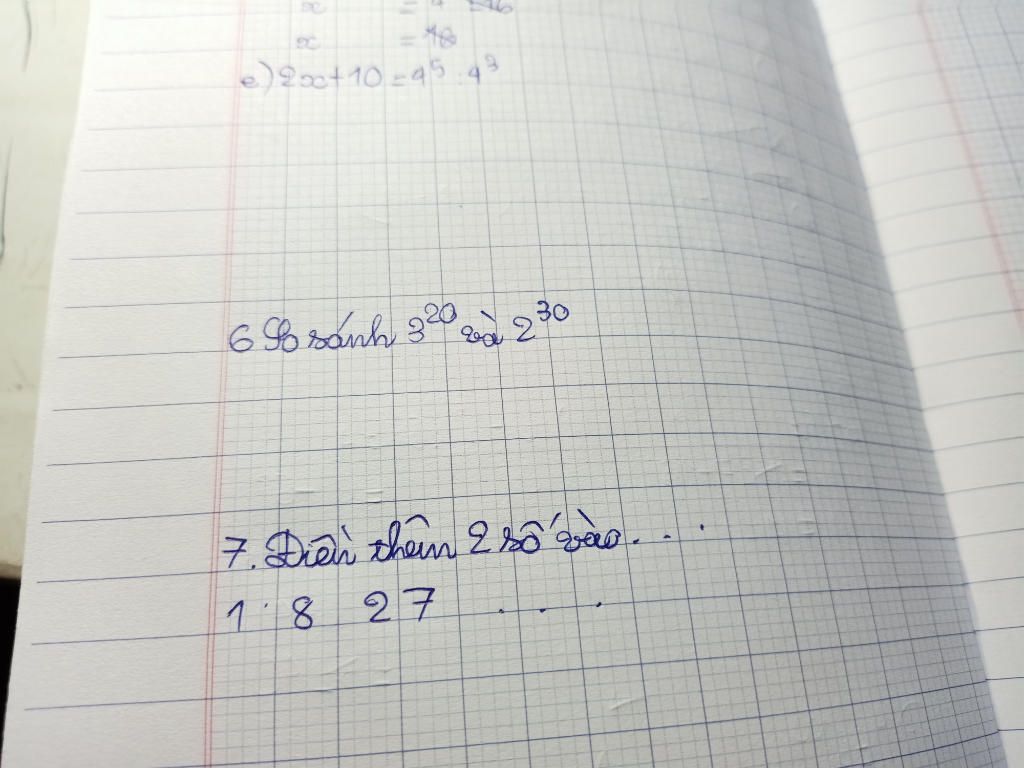 x =
x = 18
e) 2x + 10 = 4⁵ . 4³
6 So sánh 3²⁰ và 2³⁰
7. Điền thêm 2 số vào . . .
1 8 27 . . .